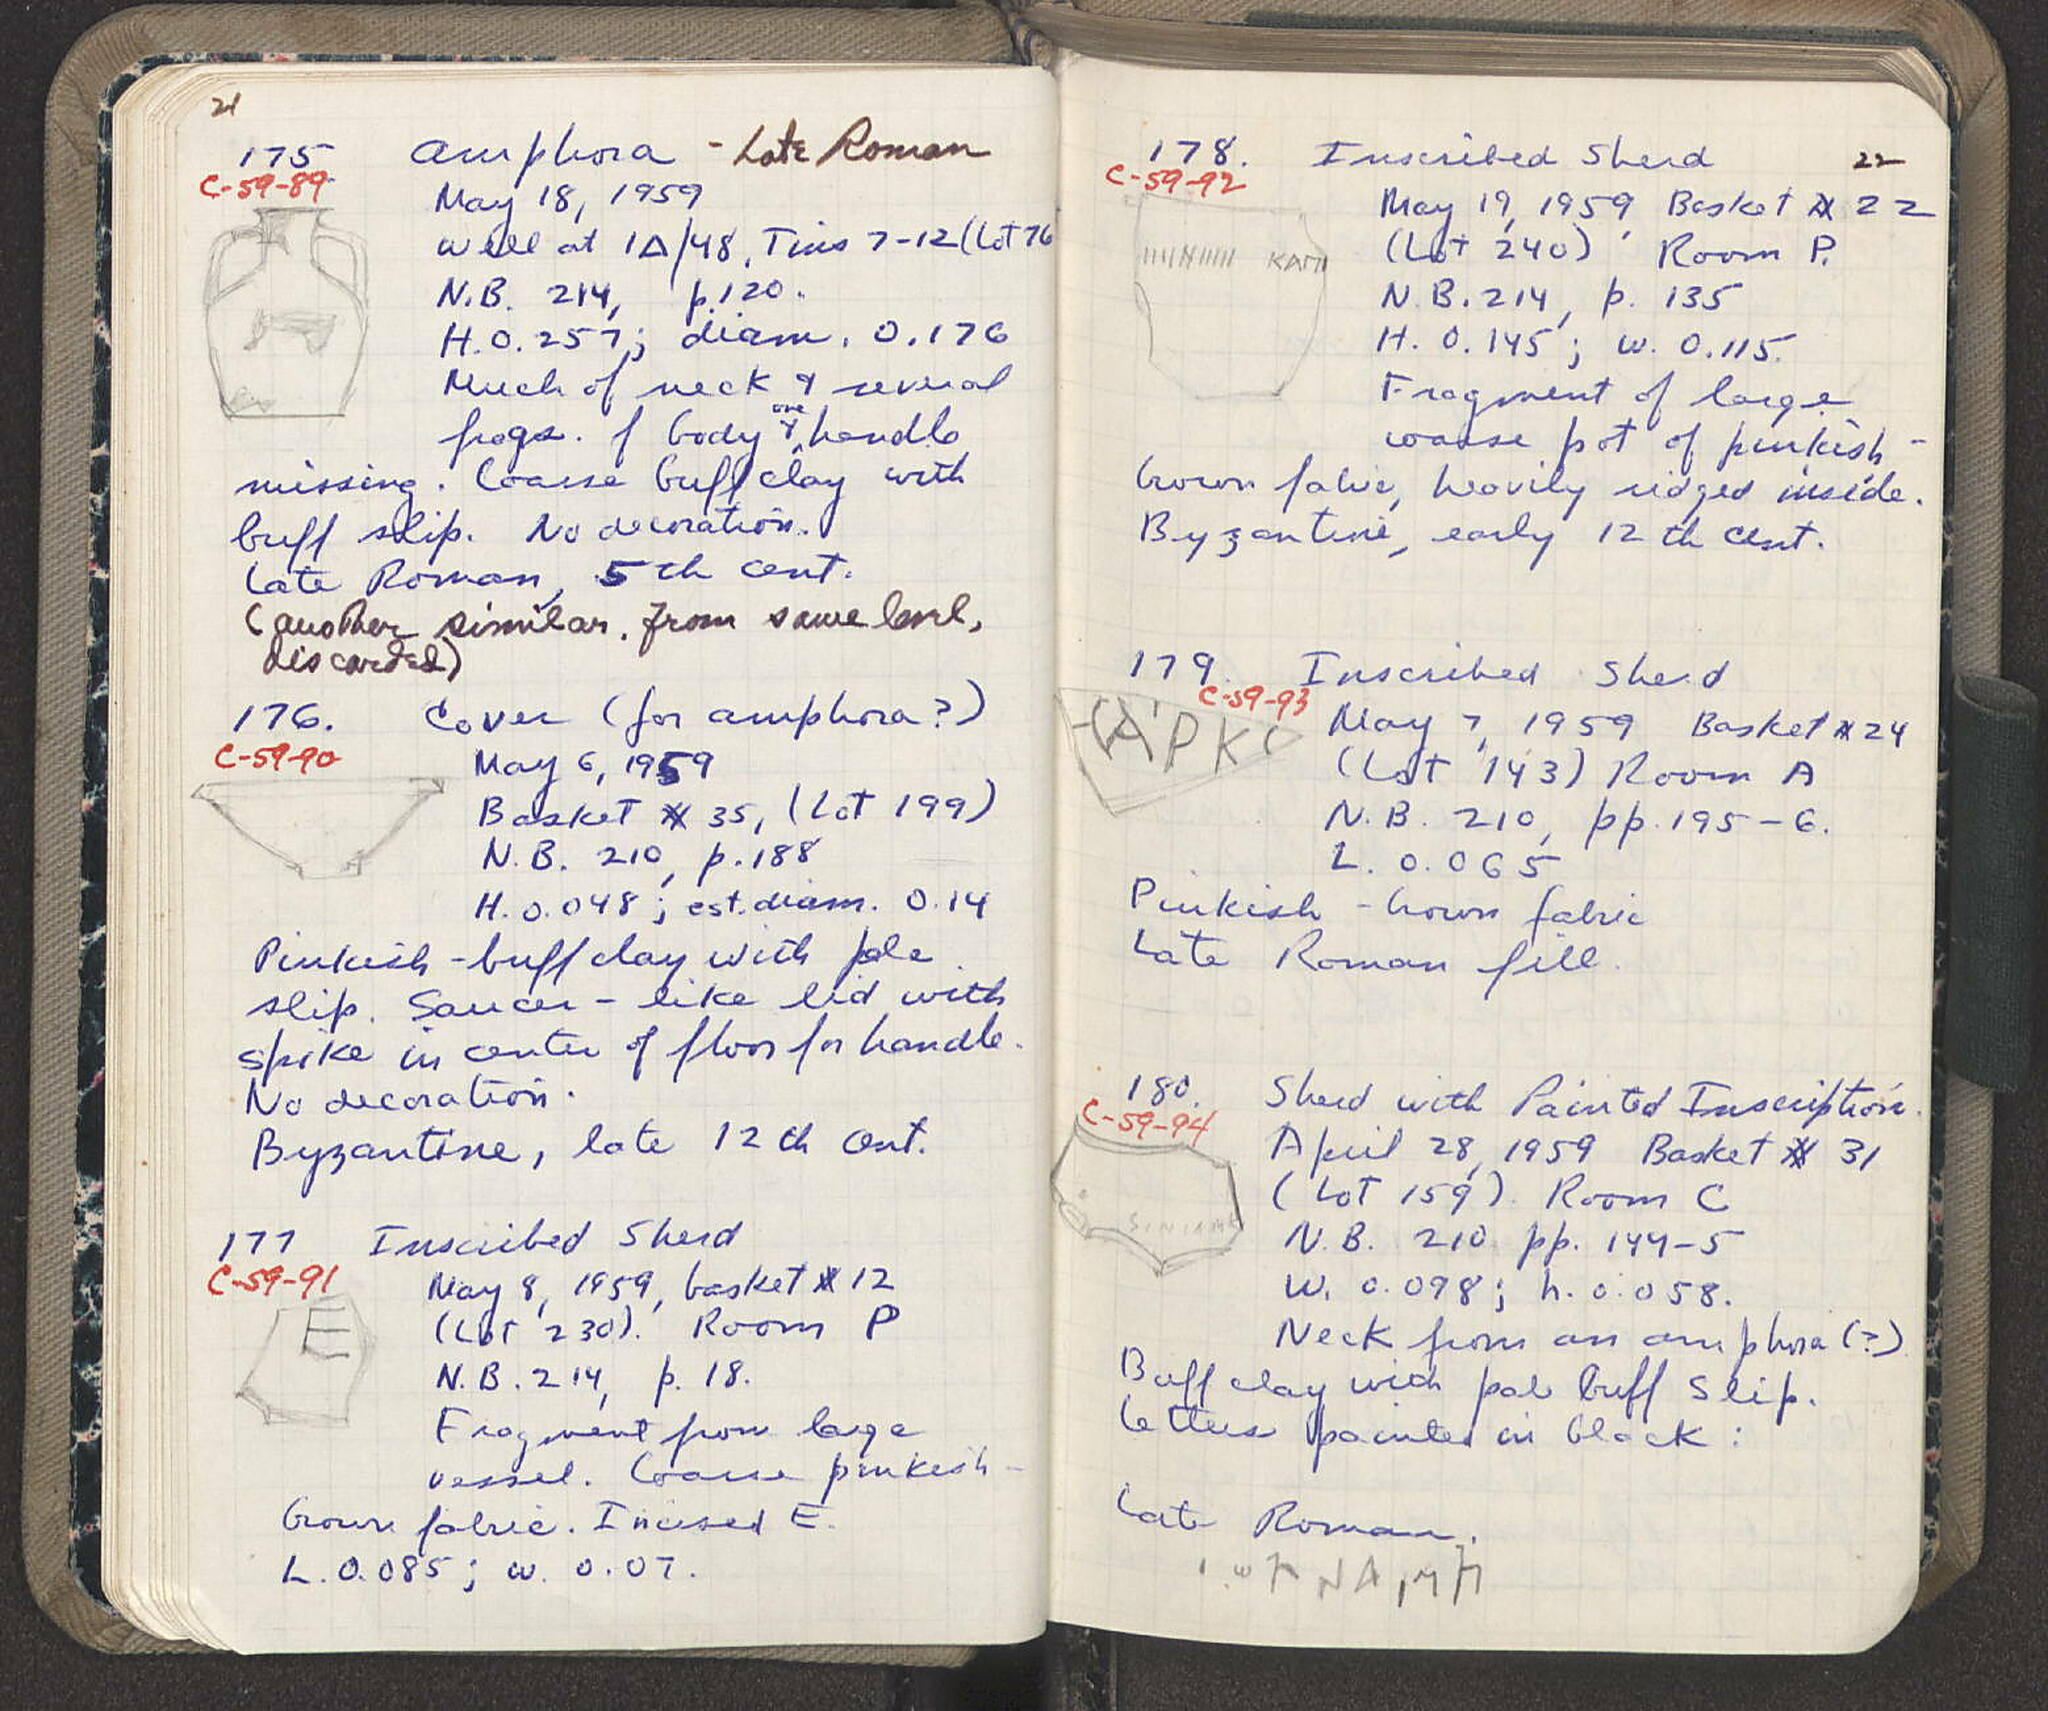 21
175 Amphora - Late Roman
C-59-89
May 18, 1959
Well at 1Δ/48, Tins 7-12 (Lot 76
N.B. 214, p.120.
H. 0.257; diam. 0.176
Much of neck & several
frags. of body & one handle
missing. Coarse buff clay with
buff slip. No decoration.
Late Roman, 5th cent.
(another similar, from same level,
discarded)
176. Cover (for amphora?)
C-59-90
May 6, 1959
Basket # 35, (Lot 199)
N.B. 210, p.188
H. 0.048; est. diam. 0.14
Pinkish-buff clay with pale
slip. Saucer-like lid with
spike in center of floor for handle.
No decoration.
Byzantine, late 12th cent.
177 Inscribed Sherd
C-59-91
E
May 8, 1959, basket # 12
(Lot 230). Room P
N.B. 214, p. 18.
Fragment from large
vessel. Coarse pinkish-
brown fabric. Incised E.
L. 0.085; w. 0.07.
22
178. Inscribed Sherd
C-59-92
May 19, 1959, Basket # 22
(Lot 240) Room P.
N.B. 214, p. 135
H. 0.145; w. 0.115.
Fragment of large
coarse pot of pinkish-
brown fabric, heavily ridged inside.
Byzantine, early 12th cent.
179. Inscribed Sherd
C-59-93
May 7, 1959 Basket # 24
(Lot 143) Room A
N.B. 210, pp. 195-6.
L. 0.065
Pinkish-brown fabric
Late Roman fill.
180. Sherd with Painted Inscription.
C-59-94
April 28, 1959 Basket # 31
(Lot 159) Room C
N.B. 210 pp. 144-5
W. 0.098; h. 0.058.
Neck from an amphora (?)
Buff clay with pale buff slip.
Letters painted in black:
Late Roman.